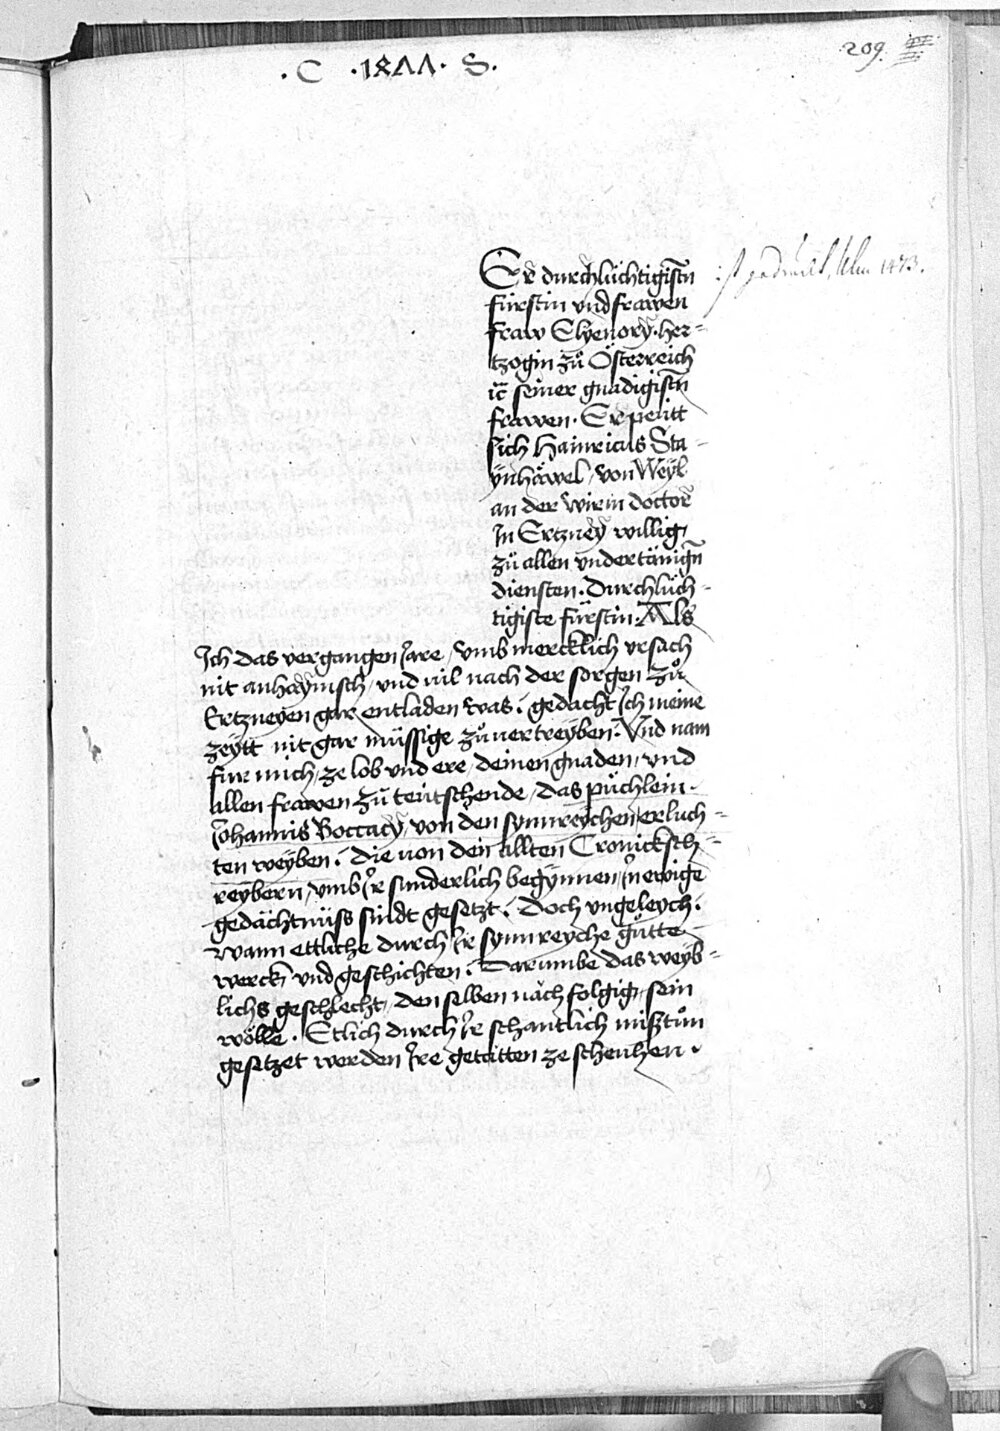 · C · 1477 · S ·
209.
Er durchlüchtigistn̄
fürstin vnd frawen
fraw Elyenorÿ · her=
tzogin zů Österreich
ic̄ seiner gnadigistn̄
frawen · Erpeütt
sich Hainricus Sta=
ÿnhäwel / von Weÿl
an der wirm doctor
In Ertzneÿ willig
zů allen vndertänign̄
diensten · Durchlüch=
tigiste fürstin · Als
ist gedruckt, Ulm 1473.
Ich das vergangen Jare / vmb mercklich vrsach
nit anhaÿmsch / vnd vil nach der sorgen zů
Ertzneyen gar entladen was / gedacht Ich meine
zeÿtt nit gar müssige zů uertreÿben / Vnd nam
für mich / ze lob vnd ere / deinen gnaden / vnd
allen frawen zů teütschende / das püchlein ·
Johannis Boccacÿ / von den synnreÿchen erluch=
ten weÿben / die von den allten Cronicksch=
reybern / vmb Ir sunderlich begÿnnen / In ewige
gedächtnüss sindt gesetzt / Doch vngeleych /
Wann ettliche durch Ir synnreyche gůtte
werck vnd geschichten / Darumbe das weÿb=
lichs geschlecht / den selben nach folgig sein
wölle · Etlich durch Ir schantlich mißtůn
gesetzet werden Ire getatten ze scheühen ·